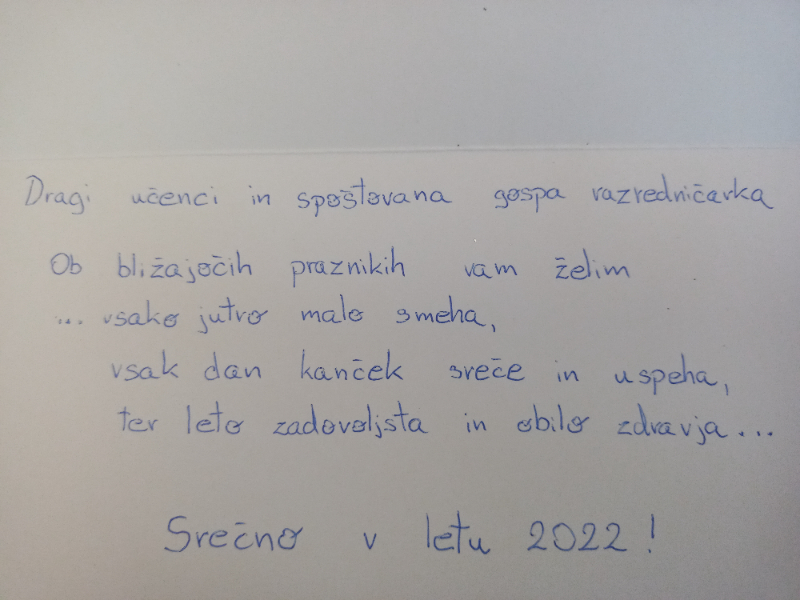 Dragi učenci in spoštovana gospa razredničarka
Ob bližajočih praznikih vam želim
... vsako jutro malo smeha,
vsak dan kanček sreče in uspeha,
ter leto zadovoljsta in obilo zdravja...
Srečno v letu 2022!